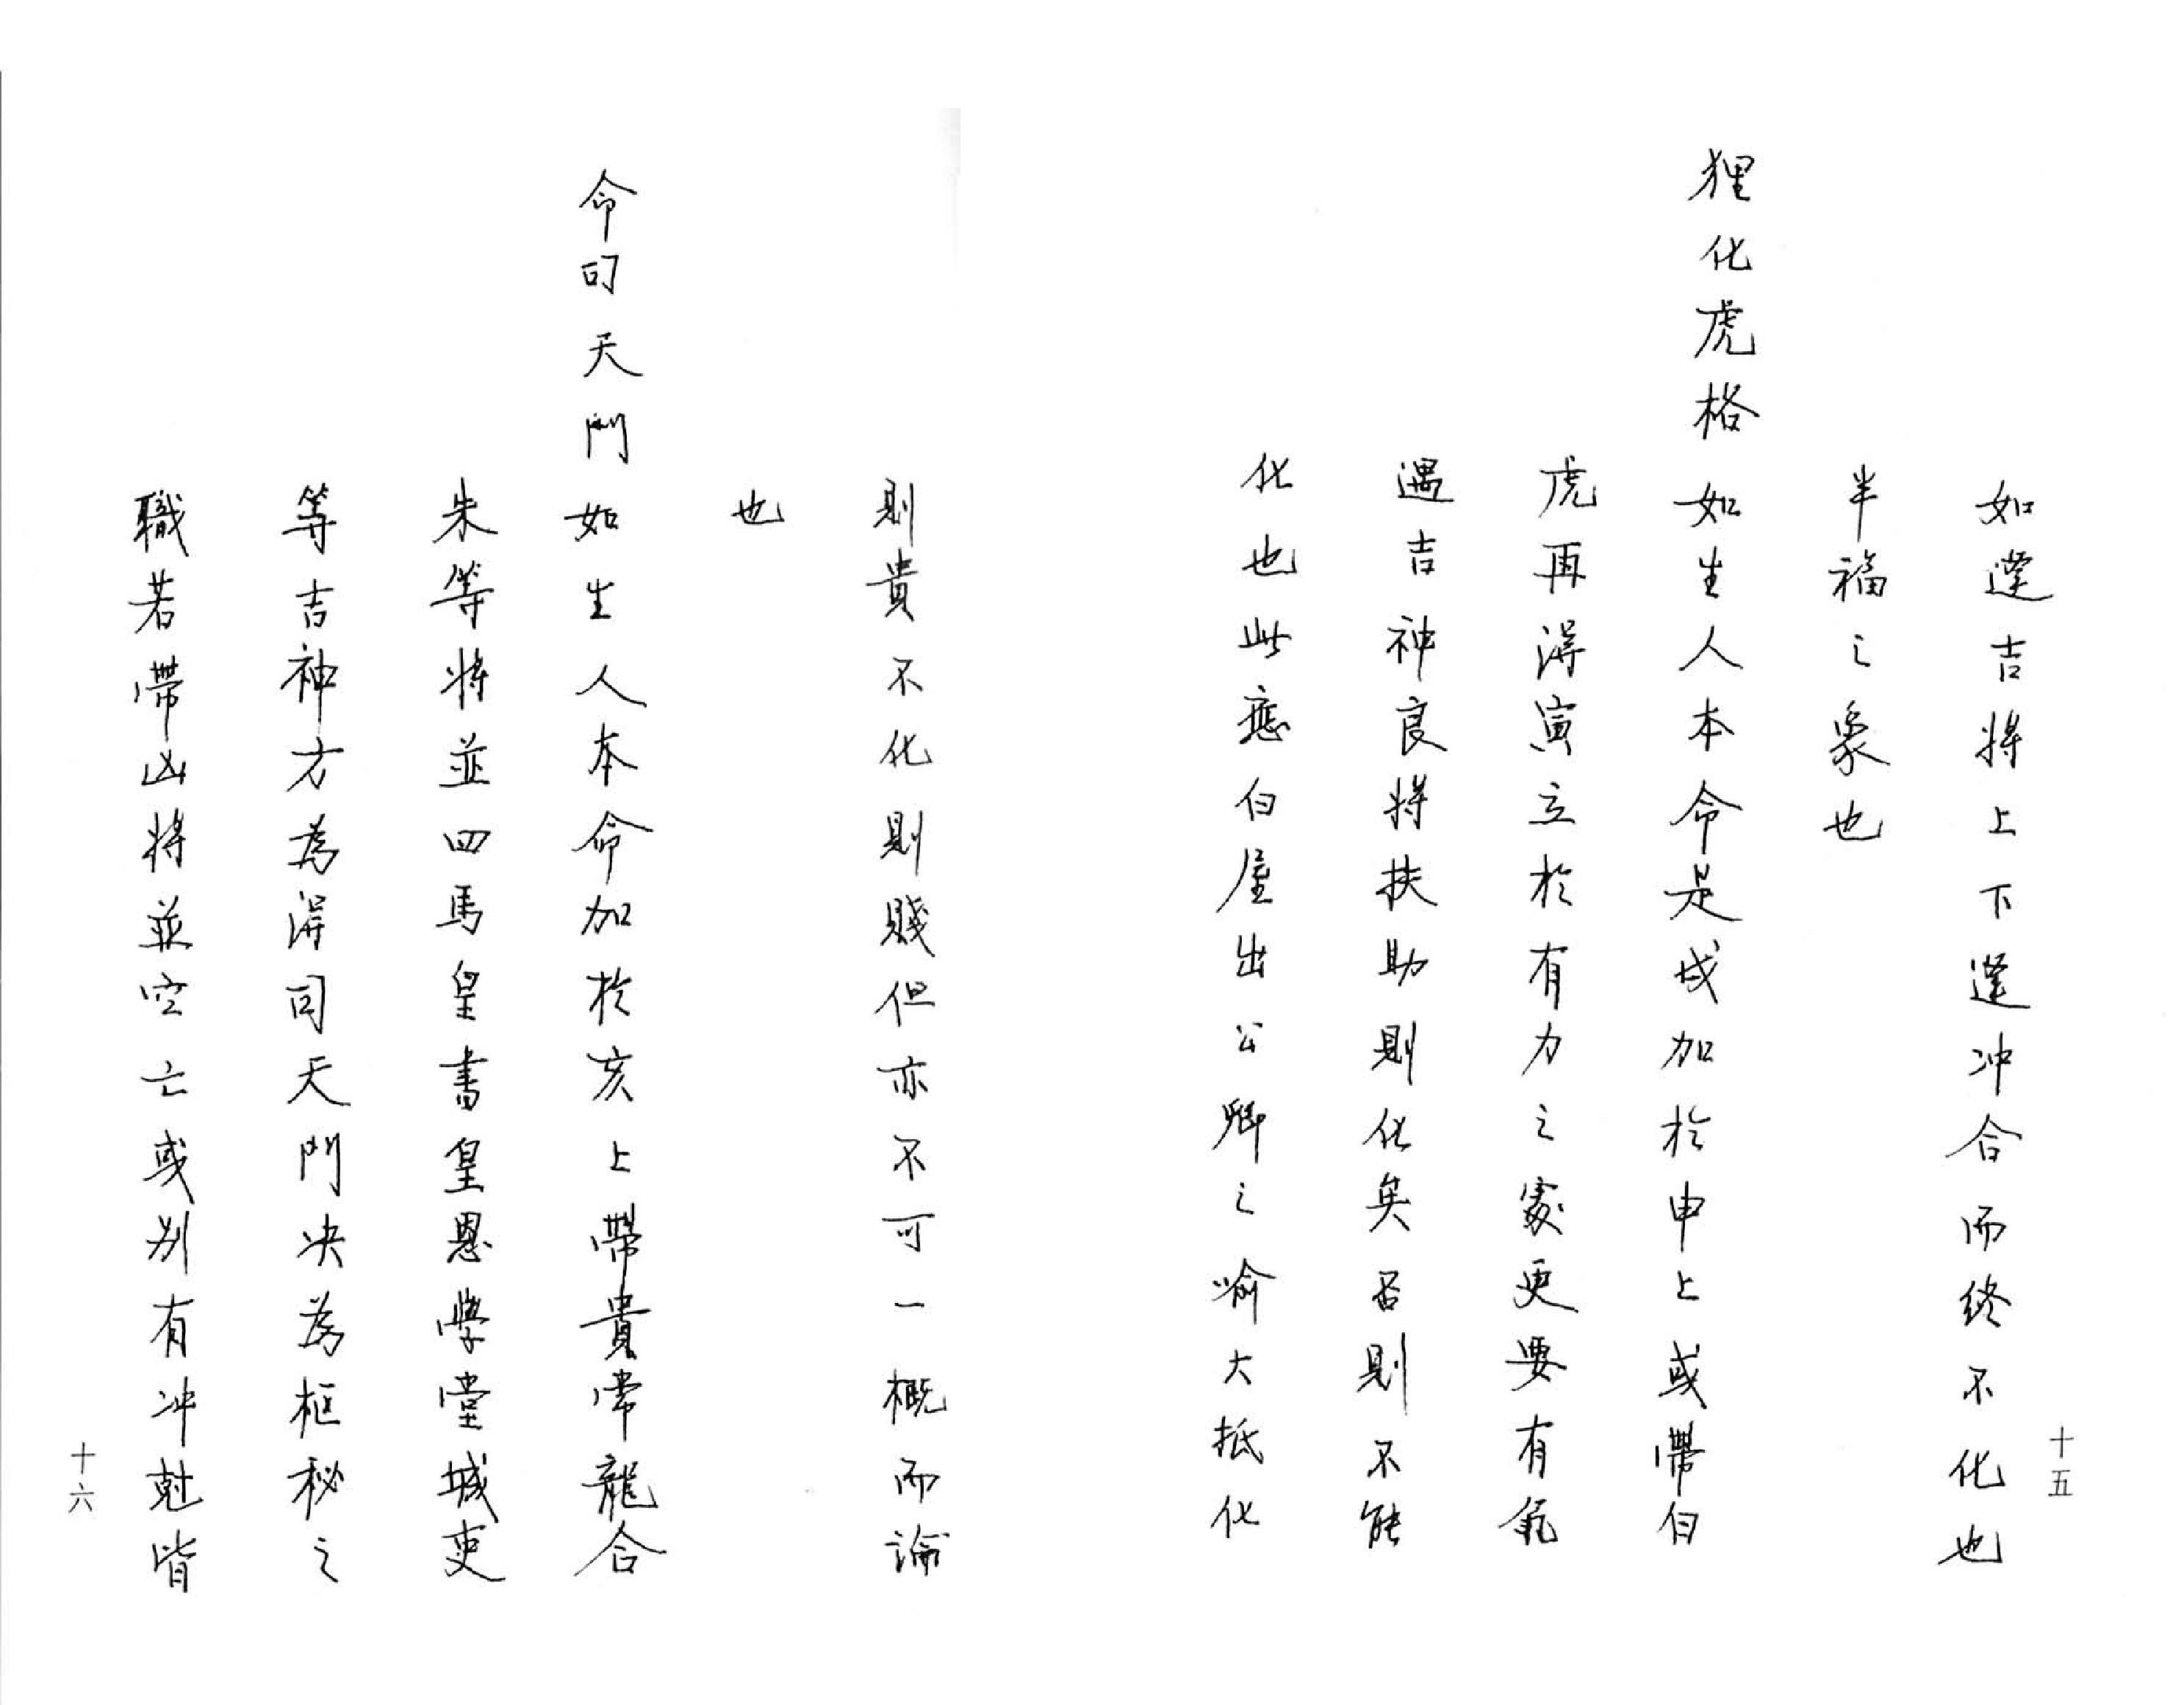 十五
如逢吉將上下逢冲合而终不化也
半福之象也
狸化虎格如生人本命是戌加於申上或帶白
虎再得寅立於有力之家更要有氣
遇吉神良將扶助則化矣否則不能
化也此應白屋出公卿之喻大抵化
則貴不化則賤但亦不可一概而論
也
命司天門如生人本命加於亥上帶貴常龍合
朱等將並四馬皇書皇恩學堂城吏
等吉神方為得司天門决為枢秘之
職若帶凶將並空亡或别有冲尅皆
十六